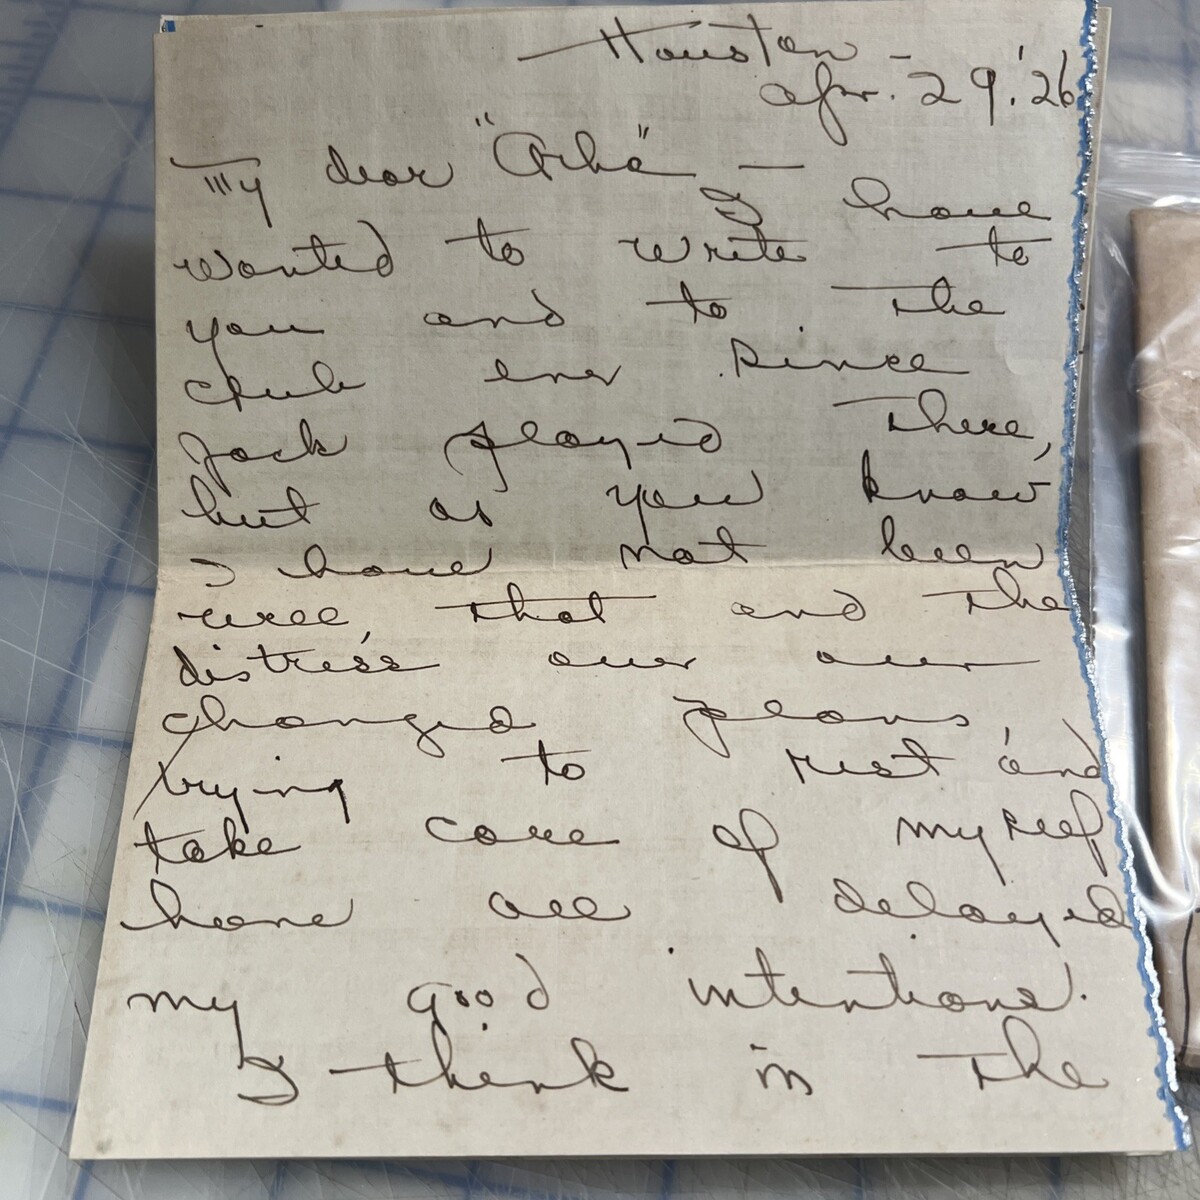 Houston -
Apr. 29. '26
My dear "Arba" —
I have
wanted to write to
you and to the
club ever since
Jack played there,
but as you know
I have not been
well, that and the
distress over our
changed plans,
trying to rest and
take care of myself
have all delayed
my good intentions.
I think in the